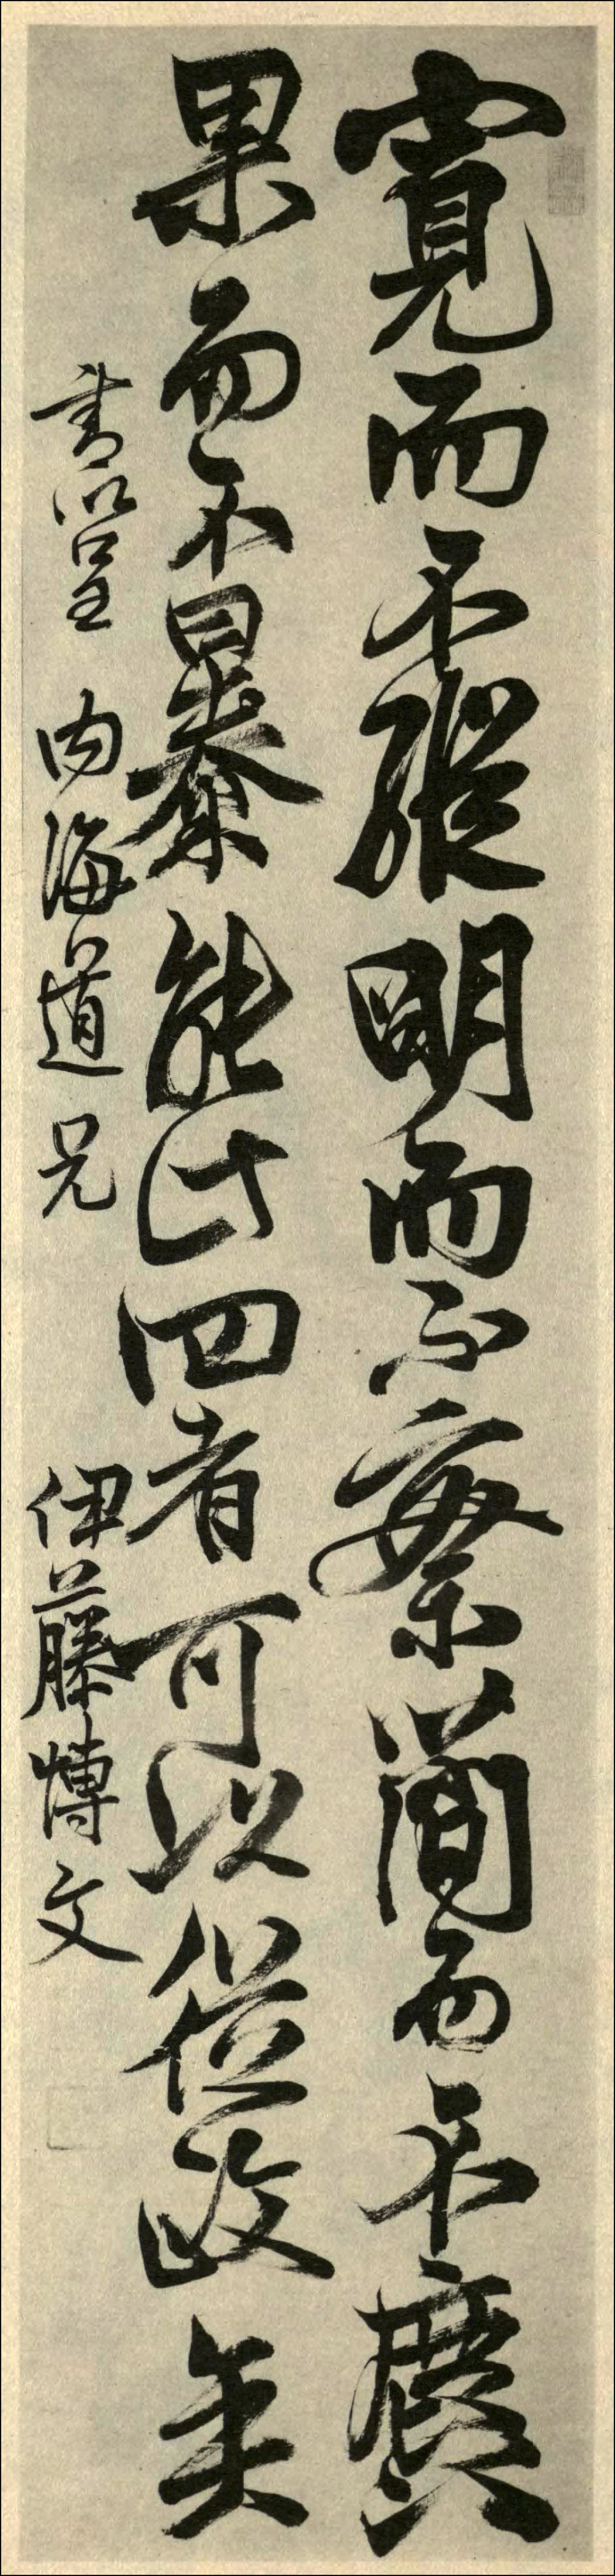 寛而不縱明而不察簡而不廢
果而不暴能此四者可以從政矣
書以呈 内海道兄 伊藤博文